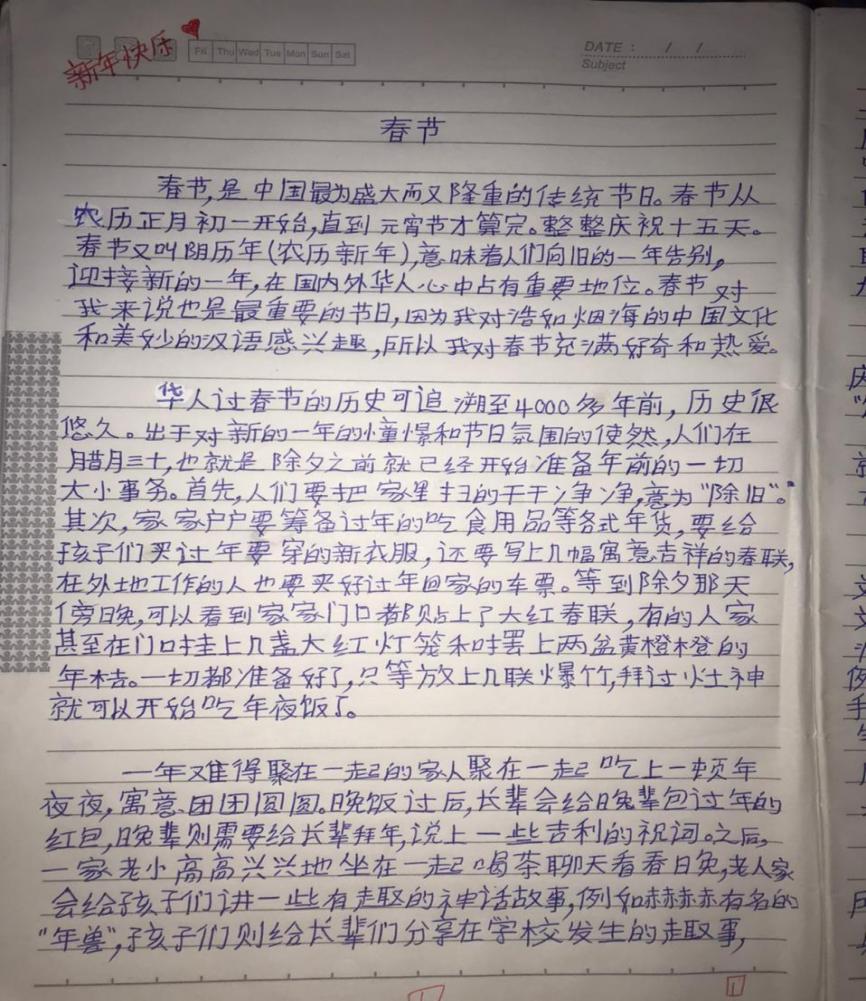 新年快乐
Fri Thu Wed Tue Mon Sun Sat
DATE : / /
Subject
春节
春节,是中国最为盛大而又隆重的传统节日。春节从
农历正月初一开始,直到元宵节才算完。整整庆祝十五天。
春节又叫阴历年(农历新年),意味着人们向旧的一年告别,
迎接新的一年,在国内外华人心中占有重要地位。春节对
我来说也是最重要的节日,因为我对浩如烟海的中国文化
和美妙的汉语感兴趣,所以我对春节充满好奇和热爱。
华人过春节的历史可追溯至4000多年前,历史很
悠久。出于对新的一年的憧憬和节日氛围的使然,人们在
腊月三十,也就是除夕之前就已经开始准备年前的一切
大小事务。首先,人们要把家里扫的干干净净,意为"除旧"。
其次,家家户户要筹备过年的吃食用品等各式年货,要给
孩子们买过年要穿的新衣服,还要写上几幅寓意吉祥的春联,
在外地工作的人也要买好过年回家的车票。等到除夕那天
傍晚,可以看到家家门口都贴上了大红春联,有的人家
甚至在门口挂上几盏大红灯笼和摆上两盆黄橙橙的
年桔。一切都准备好了,只等放上几联爆竹,拜过灶神
就可以开始吃年夜饭了。
一年难得聚在一起的家人聚在一起吃上一顿年
夜夜,寓意团团圆圆。晚饭过后,长辈会给晚辈包过年的
红包,晚辈则需要给长辈拜年,说上一些吉利的祝词。之后,
一家老小高高兴兴地坐在一起喝茶聊天看春晚,老人家
会给孩子们讲一些有趣的神话故事,例如赫赫有名的
"年兽",孩子们则给长辈们分享在学校发生的趣事,